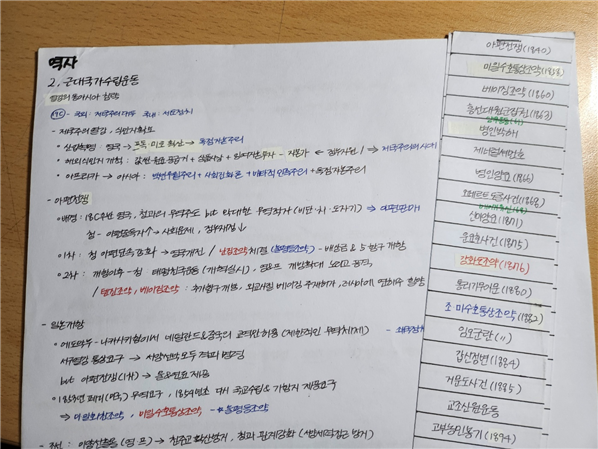 역사
2. 근대국가수립운동
열강의 동아시아 침략
19C - 국외: 제국주의 대두 국내: 세도정치
- 제국주의 열강: 식민지 확보
• 산업혁명: 영국 → 프독·미로 확산 → 독점자본주의
• 해외 식민지 개척: 값싼 원료 공급지 + 상품시장 + 잉여자본투자 - 자본가 ← 정부지원 / → 제국주의
• 아프리카 → 아시아: 백인우월주의 + 사회진화론 + 배타적 민족주의 + 독점자본주의
- 아편전쟁
•배경: 18C 후반 영국, 청과의 무역주도 but 막대한 무역적자 (비단·차·도자기) ⇒ 아편판매
청 - 아편 → 사회문제, 정부재정↓
•1차: 청 아편단속강화 → 영국개전 / 난징조약체결 (불평등조약) - 배상금 & 5항구 개항
•2차: 개항이후 - 청 태평천국운동 영·프 개방확대 노리고 공격,
/ 톈진조약, 베이징조약: 추가항구개방, 외교사절 베이징 주재허가, 러시아에 연해주 할양
- 일본개항
•에도막부 - 나가사키항에서 네덜란드&중국의 교역만 허용 (제한적인 무역체제)
서구열강 통상요구 → 사절 모두 격퇴
but 아편전쟁(1차) → 제공
•1853년 페리(미국) 무역요구, 1854년 국교수립 & 개항지 제공요구
⇒ 미일화친조약, 미일수호통상조약 - #불평등조약
- 조선: 이양선출몰 (영·프) → 천주교 확산방지, 청과 관계강화 (서양세력접근 방지)
아편전쟁(1840)
미일수호통상조약(1858)
베이징조약(1860)
흥선대원군집권(1863)
병인박해
제너럴셔먼호
병인양요(1866)
오페르트 도굴사건(1868)
신미양요(1871)
운요호사건(1875)
강화도조약(1876)
통리기무아문(1880)
조미수호통상조약(1882)
임오군란(〃)
갑신정변(1884)
거문도사건(1885)
교조신원운동
고부농민봉기(1894)